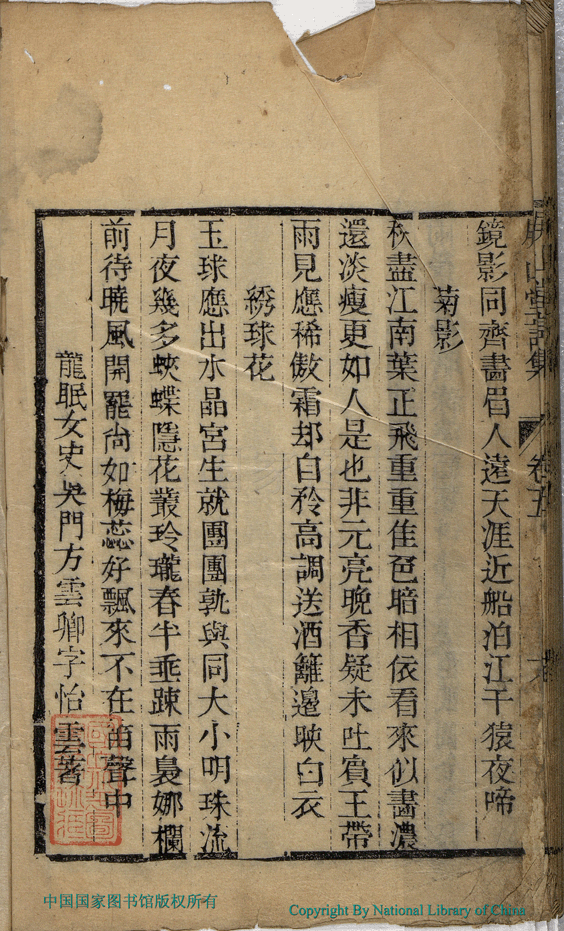 山堂詩集 卷五
鏡影同齊畵眉人遠天涯近船泊江干猿夜啼
菊影
秋盡江南葉正飛重重佳色暗相依看來似畵濃
還淡瘦更如人是也非元亮晚香疑未吐賓王帶
雨見應稀傲霜却自矜高調送酒籬邊映白衣
綉球花
玉球應出水晶宮生就團團孰與同大小明珠流
月夜幾多蛺蝶隱花叢玲瓏春半垂踈雨裊娜欄
前待曉風開罷尚如梅蕊好飄來不在笛聲中
龍眠女史吳門方雲卿字怡雲著
中国国家图书馆版权所有
Copyright By National Library of China